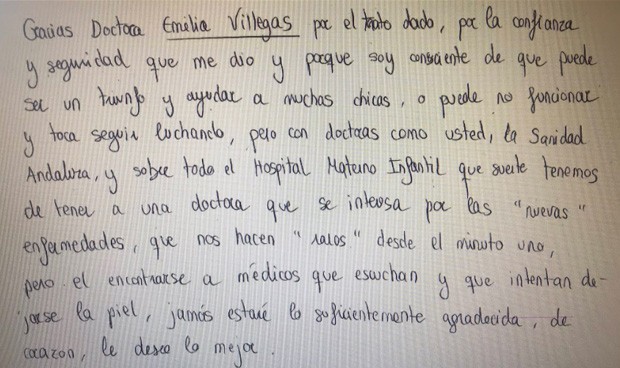 Gracias Doctora Emilia Villegas por el trato dado, por la confianza
y seguridad que me dio y porque soy consciente de que puede
ser un triunfo y ayudar a muchas chicas, o puede no funcionar
y toca seguir luchando, pero con doctoras como usted, la Sanidad
Andaluza, y sobre todo el Hospital Materno Infantil que suerte tenemos
de tener a una doctora que se interesa por las "nuevas"
enfermedades, que nos hacen "raros" desde el minuto uno,
pero el encontrarse a médicos que escuchan y que intentan de-
jarse la piel, jamás estaré lo suficientemente agradecida, de
corazon, le deseo lo mejor.